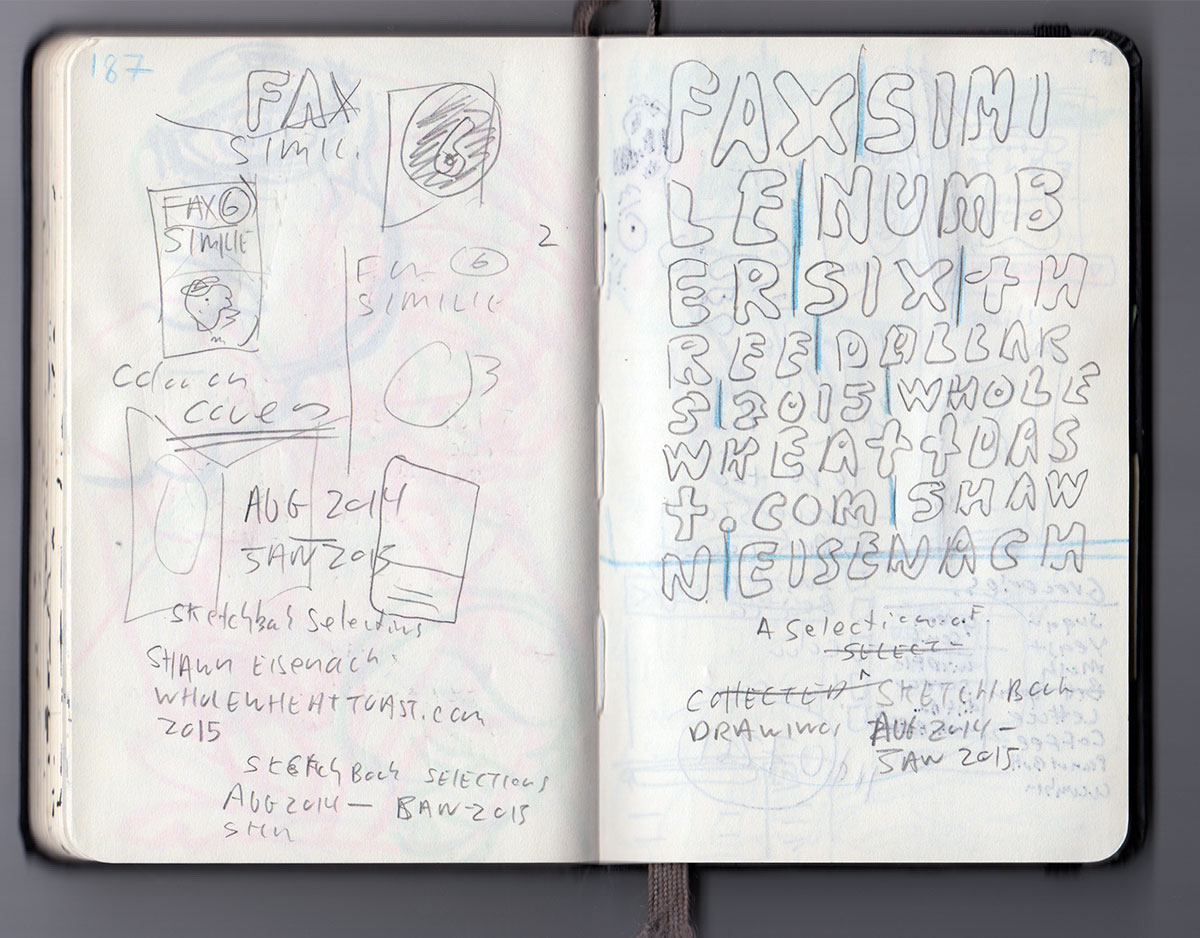 187
FAX
SIMIL.
FAX 6
SIMILIE
6
2
6
SIMILIE
AUG 2014
JAN 2015
Sketchbook Selections
SHAWN EISENACH
WHOLEWHEATTOAST.COM
2015
SKETCHBOOK SELECTIONS
AUG 2014 — BAN 2015
SHN
FAX|SIMI
LE|NUMB
ER|SIX|TH
REE|DOLLAR
S|2015|WHOLE
WHEATTOAS
T.COM|SHAW
N|EISENACH
A Selection of
SELECT
COLLECTED ^ SKETCHBOOK
DRAWINGS AUG 2014 —
JAN 2015
Groceries
Yeast
Lettuce
Coffee